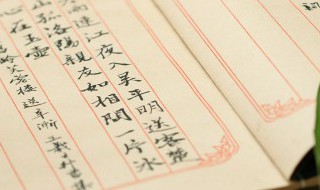 雨連江夜入吴平明送客楚
山孤洛陽親友如相問一片冰
心在玉壺
芙蓉楼送辛漸